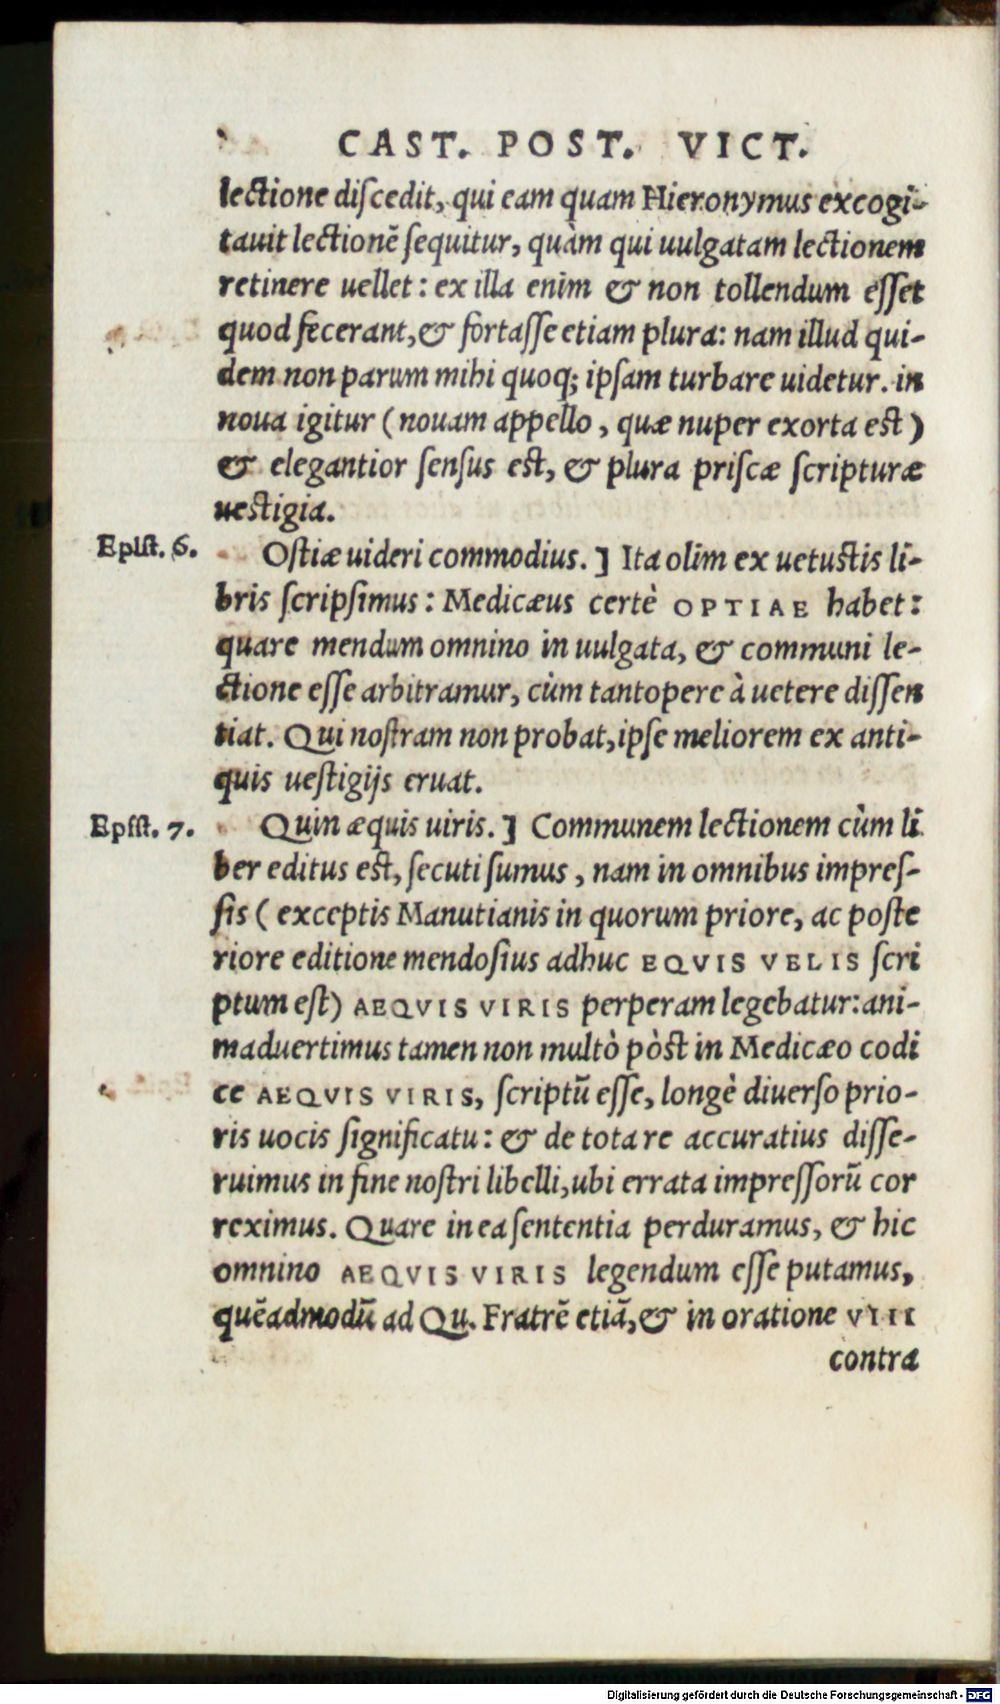 CAST. POST. VICT.
lectione discedit, qui eam quam Hieronymus excogi-
tauit lectionē sequitur, quàm qui uulgatam lectionem
retinere uellet: ex illa enim & non tollendum esset
quod fecerant, & fortasse etiam plura: nam illud qui-
dem non parum mihi quoq; ipsam turbare uidetur. in
noua igitur (nouam appello, quæ nuper exorta est)
& elegantior sensus est, & plura priscæ scripturæ
uestigia.
Epist. 6.
Ostiæ uideri commodius.] Ita olim ex uetustis li-
bris scripsimus: Medicæus certè OPTIAE habet:
quare mendum omnino in uulgata, & communi le-
ctione esse arbitramur, cùm tantopere à uetere dissen
tiat. Qui nostram non probat, ipse meliorem ex anti-
quis uestigijs eruat.
Epist. 7.
Quin æquis uiris.] Communem lectionem cùm li
ber editus est, secuti sumus, nam in omnibus impres-
sis (exceptis Manutianis in quorum priore, ac poste
riore editione mendosius adhuc EQVIS VELIS scri
ptum est) AEQVIS VIRIS perperam legebatur: ani-
maduertimus tamen non multò pòst in Medicæo codi
ce AEQVIS VIRIS, scriptū esse, longè diuerso prio-
ris uocis significatu: & de tota re accuratius disse-
ruimus in fine nostri libelli, ubi errata impressorū cor
reximus. Quare in ea sententia perduramus, & hic
omnino AEQVIS VIRIS legendum esse putamus,
quēadmodū ad Qu. Fratrē etiā, & in oratione VIII
contra
Digitalisierung gefördert durch die Deutsche Forschungsgemeinschaft - DFG